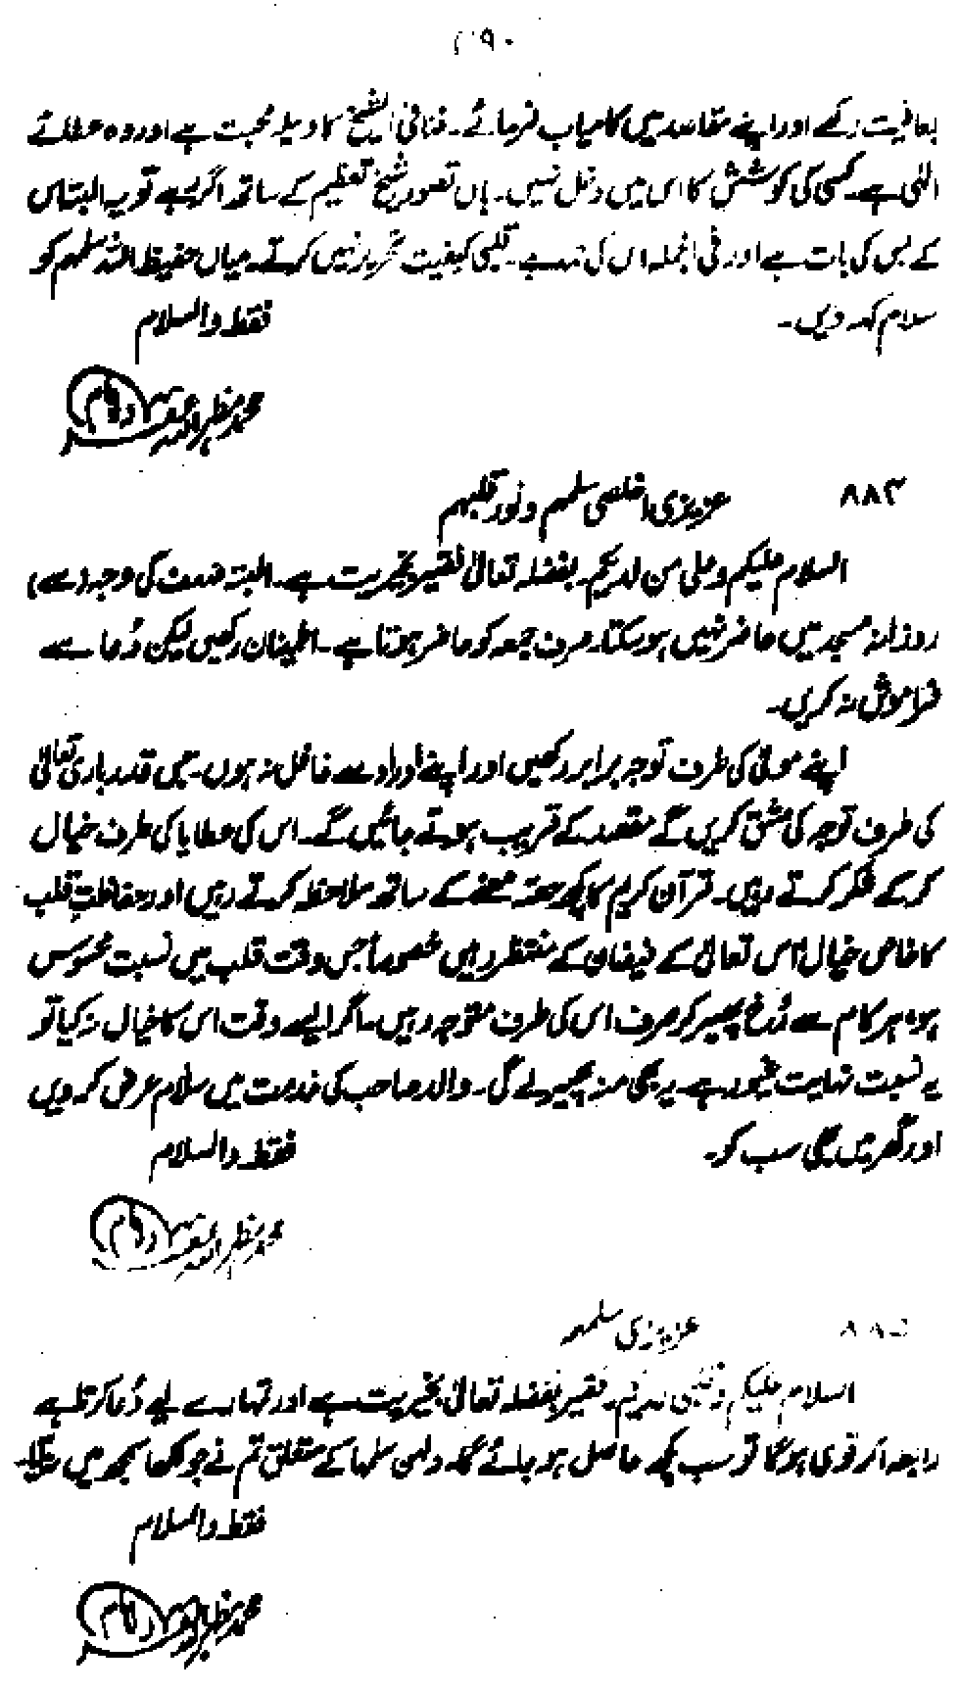 بعافیت رکھے اور اپنے مقاصد میں کامیاب فرمائے۔ فنافی الشیخ کا وسیلہ محبت ہے اور وہ عطائے
الٰہی ہے۔ کسی کی کوشش کا اس میں دخل نہیں۔ ہاں تصور شیخ تعظیم کے ساتھ اگر رہے تو یہ البتہ اس
کے بس کی بات ہے اور فی الجملہ اس کی ہے۔ قلبی کیفیت تحریر نہیں کرتے۔ میاں حفیظ اللہ سلمہم کو
سلام کہہ دیں۔ فقط والسلام
محمد مظہر اللہ
۸۸۴ عزیزی اخلصی سلمہم و نور قلبہم
السلام علیکم وعلی من لدیکم۔ بفضلہ تعالیٰ فقیر بخیریت ہے۔ البتہ ضعف کی وجہ (سے)
روزانہ مسجد میں حاضر نہیں ہوسکتا۔ صرف جمعہ کو حاضر ہوتا ہے۔ اطمینان رکھیں لیکن دُعا سے
فراموش نہ کریں۔
اپنے مولیٰ کی طرف توجہ برابر رکھیں اور اپنے اوراد سے غافل نہ ہوں۔ جس قدر باری تعالیٰ
کی طرف توجہ کی مشق کریں گے مقصد کے قریب ہوتے جائیں گے۔ اس کی عطایا کی طرف خیال
کر کے شکر کرتے رہیں۔ قرآن کریم کا کچھ حصہ معنے کے ساتھ ملاحظہ کرتے رہیں اور حفاظتِ قلب
کا خاص خیال اس تعالیٰ کے فیضان کے منتظر رہیں خصوصاً جس وقت قلب میں نسبت محسوس
ہو، ہر کام سے رُخ پھیر کر صرف اس کی طرف متوجہ رہیں۔ اگر ایسے وقت اس کا خیال نہ کیا تو
یہ نسبت نہایت غیور ہے۔ یہ بھی منہ پھیر لے گی۔ والد صاحب کی خدمت میں سلام عرض کر دیں
اور گھر میں بھی سب کو۔ فقط والسلام
محمد مظہر اللہ
۸۸۵ عزیزی سلمہ
السلام علیکم وعلی لدیکم۔ فقیر بفضلہ تعالیٰ بخیریت ہے اور تمہارے لیے دُعا کرتا ہے
رابطہ اگر قوی ہوگا تو سب کچھ حاصل ہو جائے گا۔ دلہن سلمہا کے متعلق تم نے جو لکھا سمجھ میں
فقط والسلام
محمد مظہر اللہ